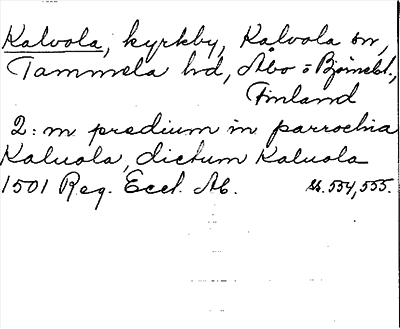 Kalvola, kyrkby, Kalvola sn,
Tammela hd, Åbo o Björnebl.,
Finland
2: m predium in parrochia
Kaluola, dictum Kaluola
1501 Reg. Eccl. Ab. ss. 554, 555.